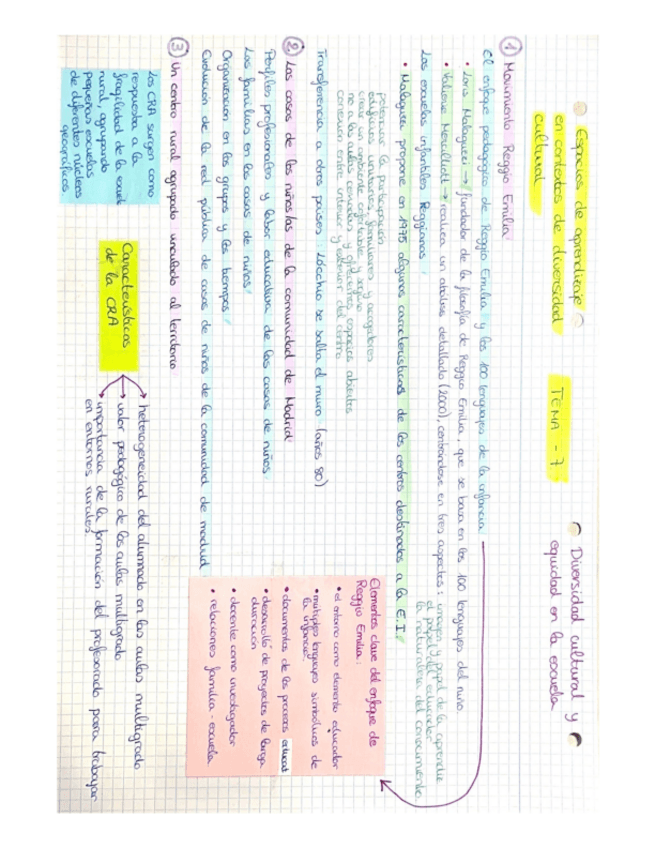 Espacios de aprendizaje
en contextos de diversidad
cultural
TEMA - 7
Diversidad cultural y
equidad en la escuela
1 Movimiento Reggio Emilia
El enfoque pedagógico de Reggio Emilia y los 100 lenguajes de la infancia
• Loris Malaguzzi → fundador de la filosofía de Reggio Emilia, que se basa en los 100 lenguajes del niño.
• Valerie → realiza un análisis detallado (2000), centrándose en tres aspectos: imagen y papel de la aprendiz
el papel del educador
la naturaleza del conocimiento
Las escuelas infantiles Reggianas
• Malaguzzi propone en 1975 algunas características de los centros destinados a la E.I
potenciar la participación
edificios unitarios, familiares y acogedores
crear un ambiente confortable y seguro
no a las aulas cerradas y ofrecemos espacios abiertos
conexión entre interior y exterior del centro
Transferencia a otros países: L'occhio se salta el muro (años 80)
Elementos clave del enfoque de
Reggio Emilia:
• el entorno como elemento educador
• múltiples lenguajes simbólicos de
la infancia
• documentos de los procesos educat
• desarrollo de proyectos de larga
duración
• docente como investigador
• relaciones familia - escuela
2 Las casas de los niños/as de la comunidad de Madrid
Perfiles profesionales y labor educativa de las casas de niños.
Las familias en las casas de niños
Organización en los grupos y los tiempos
Evolución de la red pública de casas de niños de la comunidad de madrid
3 Un centro rural agrupado vinculado al territorio
Los CRA surgen como
respuesta a la
fragilidad de la escuela
rural, agrupando
pequeñas escuelas
de diferentes núcleos
geográficos
Características
de la CRA
→ heterogeneidad del alumnado en las aulas multigrado
→ valor pedagógico de las aulas multigrado
→ importancia de la formación del profesorado para trabajar
en entornos rurales.